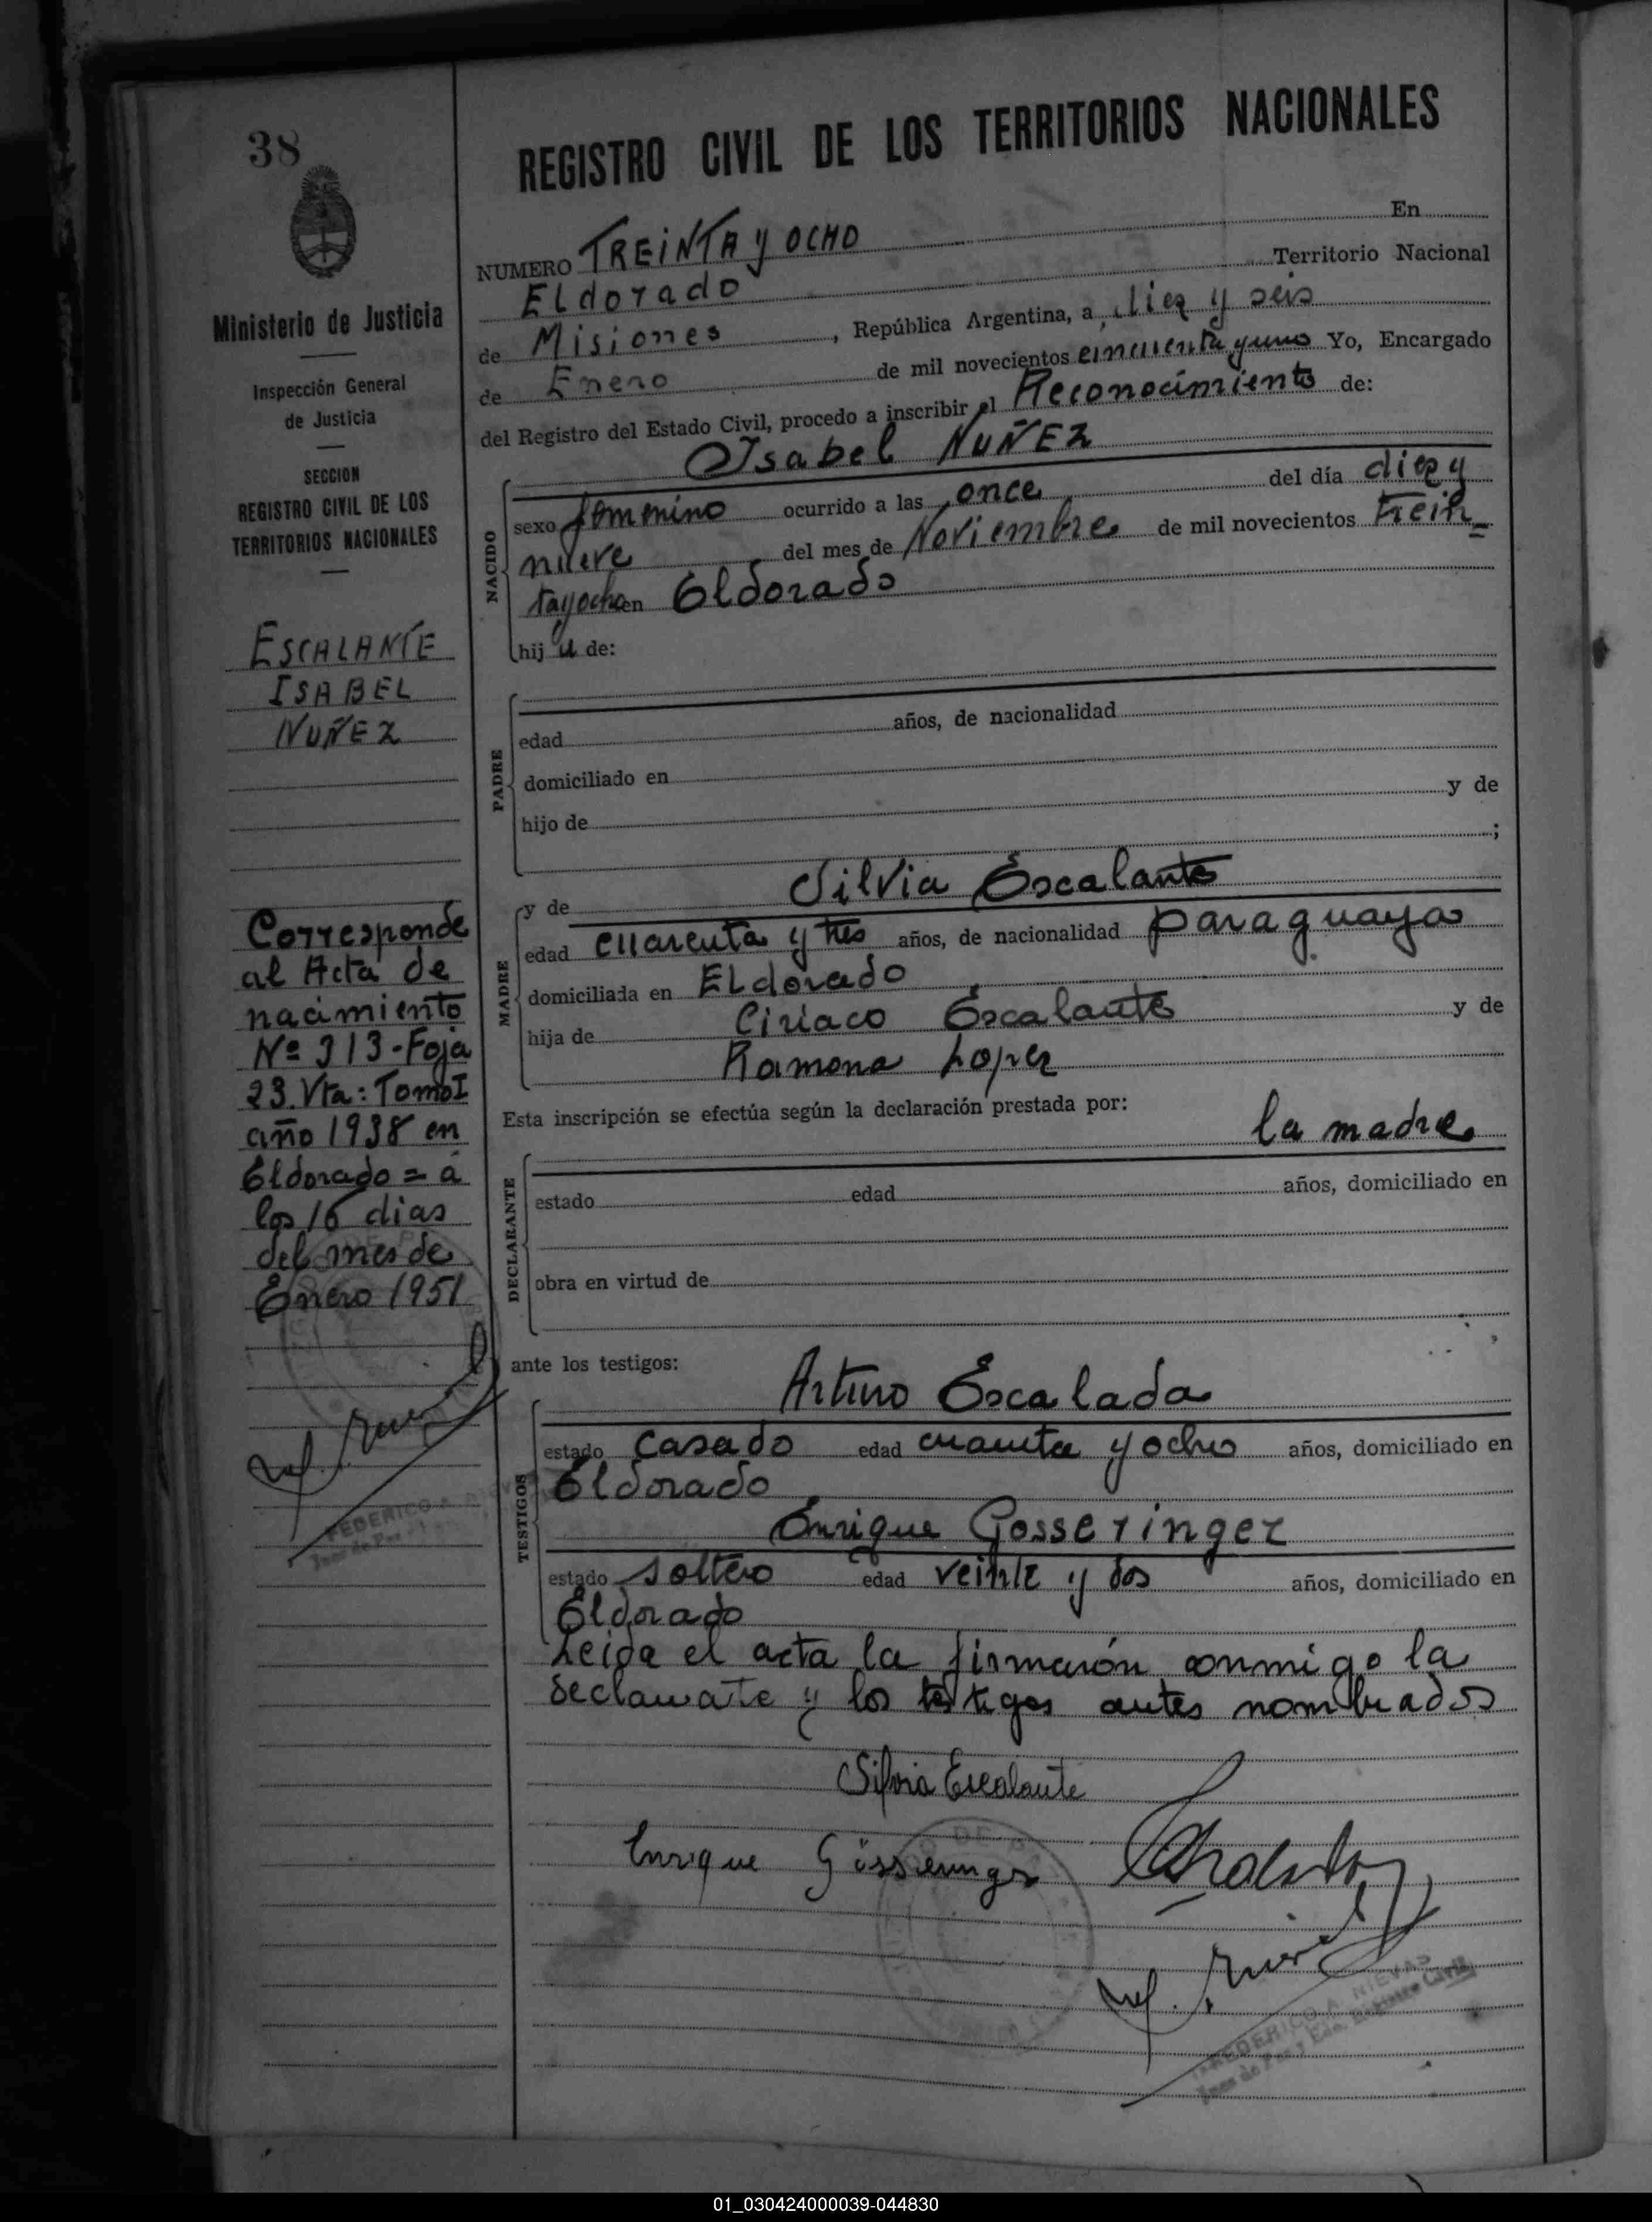 38
REGISTRO CIVIL DE LOS TERRITORIOS NACIONALES
Ministerio de Justicia
Inspección General
de Justicia
SECCION
REGISTRO CIVIL DE LOS
TERRITORIOS NACIONALES
ESCALANTE
ISABEL
NUÑEZ
Corresponde
al Acta de
nacimiento
Nº 313-Foja
23.Vta: Tomo I
año 1938 en
Eldorado = á
los 16 dias
del mes de
Enero 1951
FEDERICO A.
NUMERO TREINTA y OCHO En
Eldorado Territorio Nacional
de Misiones, República Argentina, a diez y seis
de Enero de mil novecientos cincuenta y uno Yo, Encargado
del Registro del Estado Civil, procedo a inscribir el Reconocimiento de:
Isabel NUÑEZ
NACIDO
sexo femenino ocurrido a las once del día diez y
nueve del mes de Noviembre de mil novecientos trein-
tayocho en Eldorado
hija de:
PADRE
edad años, de nacionalidad
domiciliado en
hijo de y de
;
MADRE
y de Silvia Escalante
edad cuarenta y tres años, de nacionalidad paraguaya
domiciliada en Eldorado
hija de Ciriaco Escalante y de
Ramona Lopez
Esta inscripción se efectúa según la declaración prestada por:
la madre
DECLARANTE
estado edad años, domiciliado en
obra en virtud de
ante los testigos:
Arturo Escalada
TESTIGOS
estado casado edad cuarenta y ocho años, domiciliado en
Eldorado
Enrique Gosseringer
estado soltero edad veinte y dos años, domiciliado en
Eldorado
Leida el acta la firmarón conmigo la
declarate y los testigos antes nombrados
Silvia Escalante
Enrique
FEDERICO A. NIEVAS
Juez de Paz y Enc. Registro Civil
01_030424000039-044830